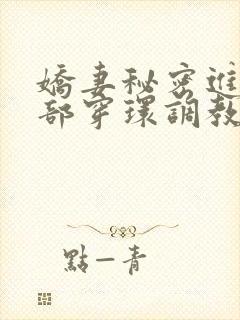 嬌妻秘密進
部穿環調教
點一青